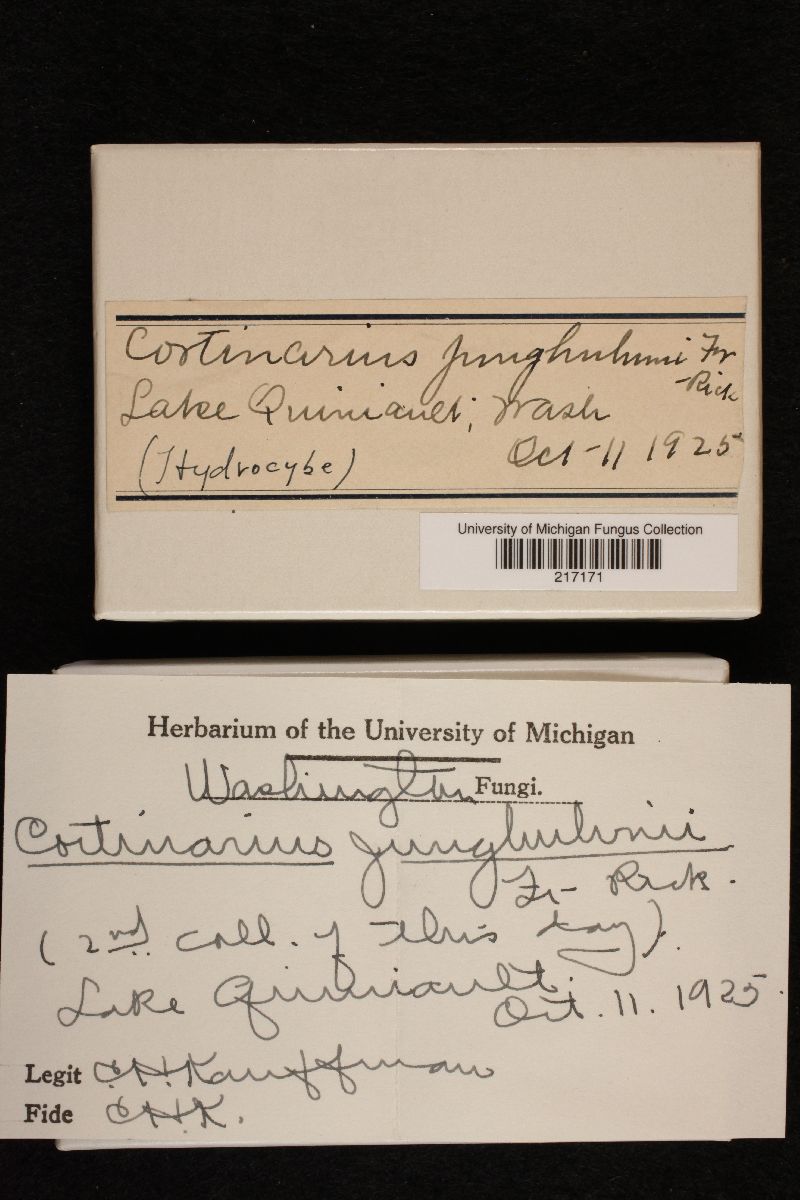 Cortinarius junghuhnii Fr
-Rick
Lake Quiniault, Wash
Oct-11 1925
(Hydrocybe)
University of Michigan Fungus Collection
217171
Herbarium of the University of Michigan
Washington Fungi.
Cortinarius junghuhnii
Fr- Rick.
(2nd coll. of this day).
Lake Quiniault,
Oct. 11. 1925.
Legit C.H. Kauffman
Fide C.H.K.